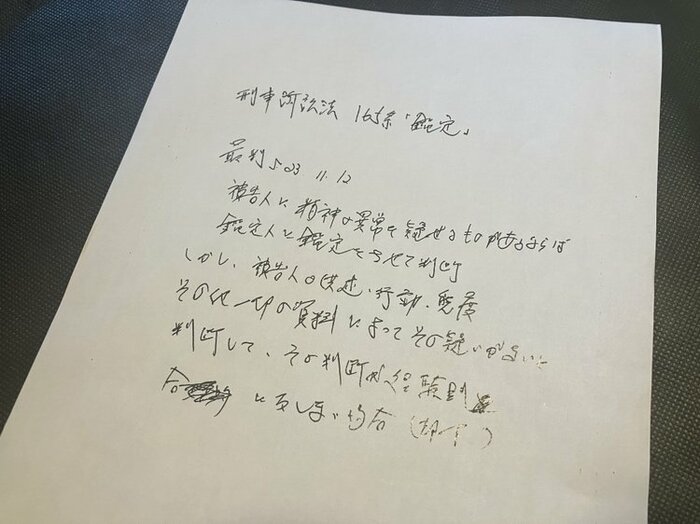 刑事訴訟法 165条「鑑定」
最判 S23 11.12
被告人に精神の異常を疑せるものがあるならば
鑑定人に鑑定をさせて判断
しかし、被告人の供述、行動、態度
その他一切の資料によってその疑いがないと
判断して、その判断が経験則
に反しない場合（却下）